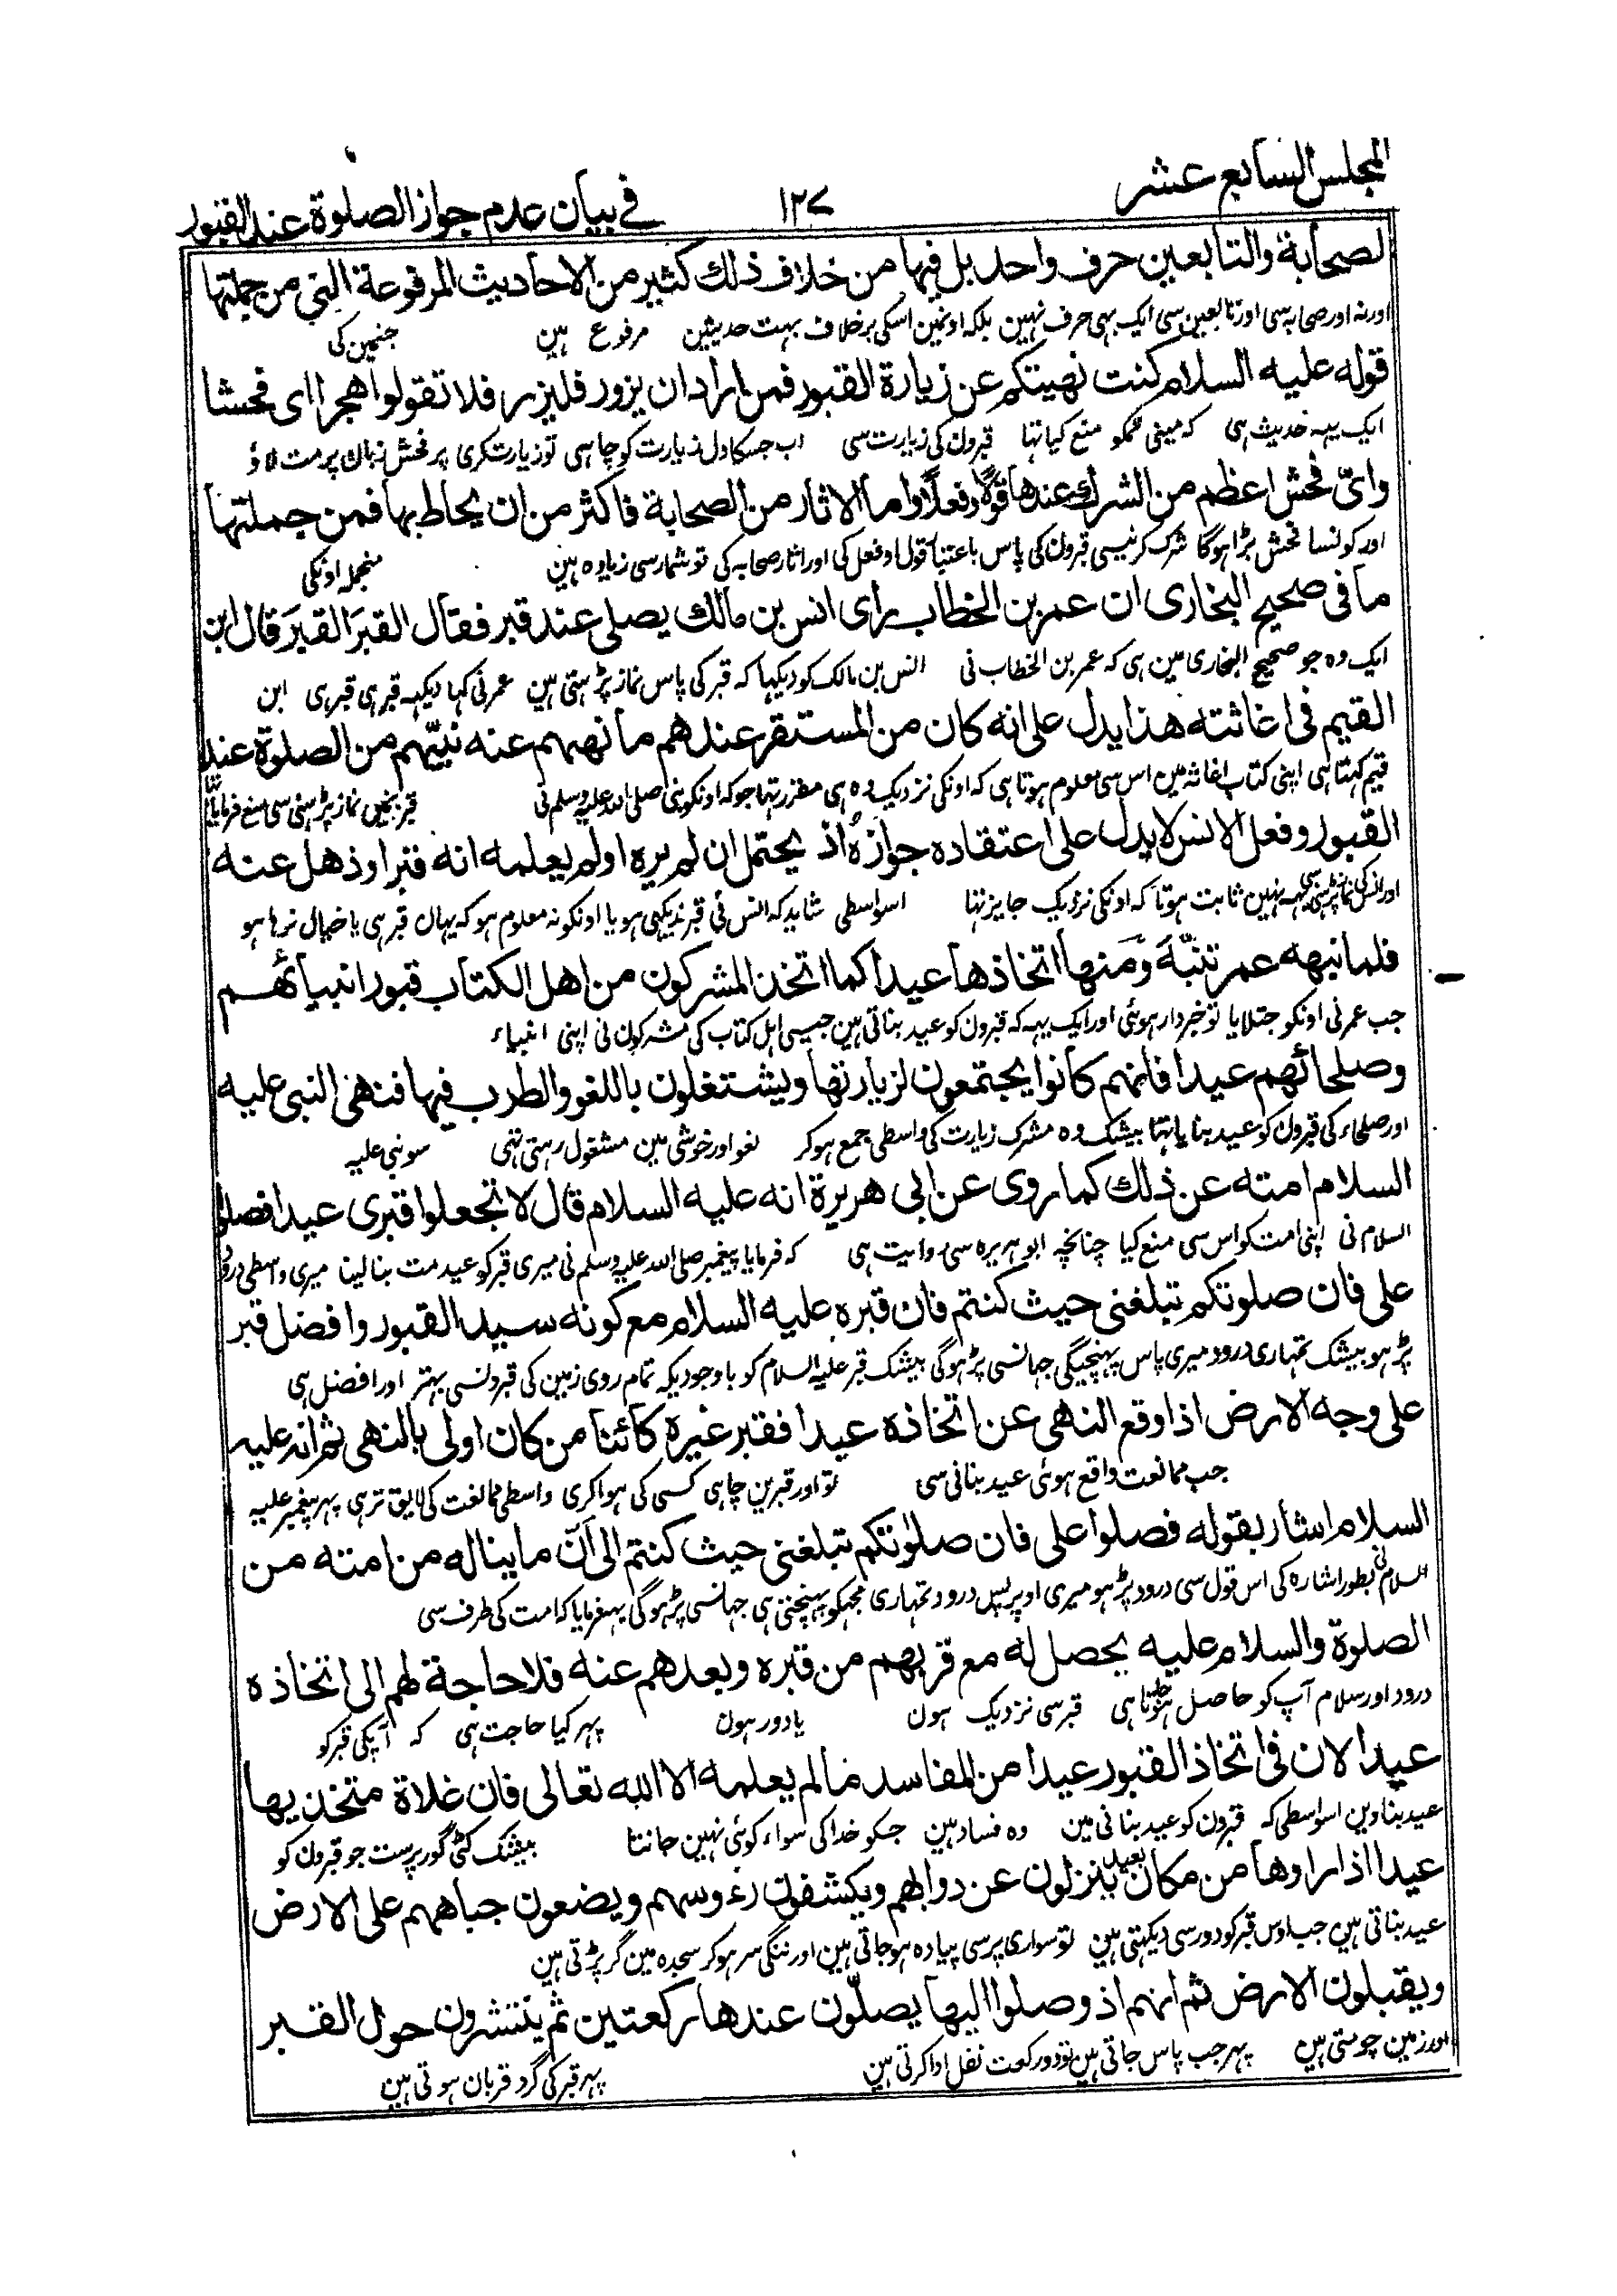 المجلس السابع عشر
١٢٧
في بيان عدم جواز الصلوة عند القبور
لصحابة والتابعين حرف واحد بل فيها من خلاف ذلك كثير من الاحاديث المرفوعة التي من جملتها
اور نہ اور صحابہ سی اور تابعین سی ایک بہی حرف نہین بلکہ اونمین اسکی برخلاف بہت حدیثین مرفوع ہین جنمین کی
قوله عليه السلام كنت نهيتكم عن زيارة القبور فمن اراد ان يزور فليزر فلا تقولوا هجرا اى فحشا
ایک یہہ حدیث ہی کہ مینی تمکو منع کیا تہا قبرون کی زیارت سی اب جسکا دل زیارت کو چاہی تو زیارت کری پر فحش زبان پر مت لاؤ
واىّ فحش اعظم من الشرك عندها قولا وفعلا واما الاثار من الصحابة فاكثر من ان يحاط بها فمن جملتها
اور کونسا فحش بڑا ہوگا شرک کرنیسی قبرون کی پاس باعتبار قول و فعل کی اور اثار صحابہ کی تو شمار سی زیادہ ہین منجملہ اونکی
ما فى صحيح البخارى ان عمر بن الخطاب راى انس بن مالك يصلى عند قبر فقال القبرَ القبرَ قال ابن
ایک وہ جو صحیح البخاری مین ہی کہ عمر بن الخطاب نی انس بن مالک کو دیکہا کہ قبر کی پاس نماز پڑہتی ہین عمر نی کہا دیکہہ قبر ہی قبر ہی ابن
القيم فى اغاثته هذا يدل على انه كان من المستقر عندهم ما نهىهم عنه نبيّهم من الصلوة عند
قیم کہتا ہی اپنی کتاب اغاثہ مین اس سی معلوم ہوتا ہی کہ اونکی نزدیک وہ ہی مقرر تہا جو کہ اونکو نبی صلی اللہ علیہ وسلم نی قبر نماز پڑہنی سی منع فرمایا
القبور وفعل الانس لا يدل على اعتقاده جوازه اذ يحتمل ان لم يره او لم يعلمه انه قبر او ذهل عنه
اور انس کی نماز پڑہنی سی یہہ نہین ثابت ہوتا کہ اونکی نزدیک جایز تہا اسواسطی شاید کہ انس نی قبر ندیکہی ہو یا اونکو نہ معلوم ہو کہ یہان قبر ہی یا خیال نرہا ہو
فلما نبهه عمر تنبّهَ ومنها اتخاذها عيدا كما اتخذ المشركون من اهل الكتاب قبور انبيائهم
جب عمر نی اونکو جتلایا تو خبردار ہوئی اور ایک یہہ کہ قبرون کو عید بناتی ہین جیسی اہل کتاب کی مشرکون نی اپنی انبیاء
وصلحائهم عيدا فانهم كانوا يجتمعون لزيارتها ويشتغلون باللغو والطرب فيها فنهى النبى عليه
اور صلحاء کی قبرون کو عید بنایا تہا بیشک وہ مشرک زیارت کی واسطی جمع ہو کر لغو اور خوشی مین مشغول رہتی تہی سو نبی علیہ
السلام امته عن ذلك كما روى عن ابى هريرة انه عليه السلام قال لا تجعلوا قبرى عيدا فصلوا
السلام نی اپنی امت کو اس سی منع کیا چنانچہ ابو ہریرہ سی روایت ہی کہ فرمایا پیغمبر صلی اللہ علیہ وسلم نی میری قبر کو عید مت بنا لینا میری واسطی درود
على فان صلوتكم تبلغنى حيث كنتم فان قبره عليه السلام مع كونه سيد القبور وافضل قبر
پڑہو بیشک تمہاری درود میری پاس پہنچیگی جہانسی پڑہوگی بیشک قبر علیہ السلام کو باوجودیکہ تمام روی زمین کی قبرونسی بہتر اور افضل ہی
على وجه الارض اذا وقع النهى عن اتخاذه عيدا فقبر غيره كائنا من كان اولى بالنهى ثم انه عليه
جب ممانعت واقع ہوئی عید بنانی سی تو اور قبرین چاہی کسی کی ہوا کری واسطی ممانعت کی لایق تر ہی پہر پیغمبر علیہ
السلام اشار بقوله فصلوا على فان صلوتكم تبلغنى حيث كنتم الى انّ ما يناله من امته من
السلام نی بطور اشارہ کی اس قول سی درود پڑہو میری اوپر پس درود تمہاری مجہکو پہنچتی ہی جہانسی پڑہوگی یہہ فرمایا کہ امت کی طرف سی
الصلوة والسلام عليه يحصل له مع قربهم من قبره وبعدهم عنه فلا حاجة لهم الى اتخاذه
درود اور سلام آپ کو حاصل ہوتا ہی قبر سی نزدیک ہون یا دور ہون پہر کیا حاجت ہی کہ آپکی قبر کو
عيدا لان فى اتخاذ القبور عيدا من المفاسد ما لم يعلمه الا الله تعالى فان غلاة متخذيها
عید بناوین اسواسطی کہ قبرون کو عید بنانی مین وہ فساد ہین جسکو خدا کی سواء کوئی نہین جانتا بیشک گور پرست جو قبرون کو
عيدا اذا راوها من مكان بعيد ينزلون عن دوابهم ويكشفون رءوسهم ويضعون جباههم على الارض
عید بناتی ہین جب اوس قبر کو دور سی دیکہتی ہین تو سواری پر سی پیادہ ہو جاتی ہین اور ننگی سر ہو کر سجدہ مین گر پڑتی ہین
ويقبلون الارض ثم انهم اذ وصلوا اليها يصلّون عندها ركعتين ثم ينتشرون حول القبر
اور زمین چومتی ہین پہر جب پاس جاتی ہین تو دو رکعت نفل ادا کرتی ہین پہر قبر کی گرد قربان ہوتی ہین